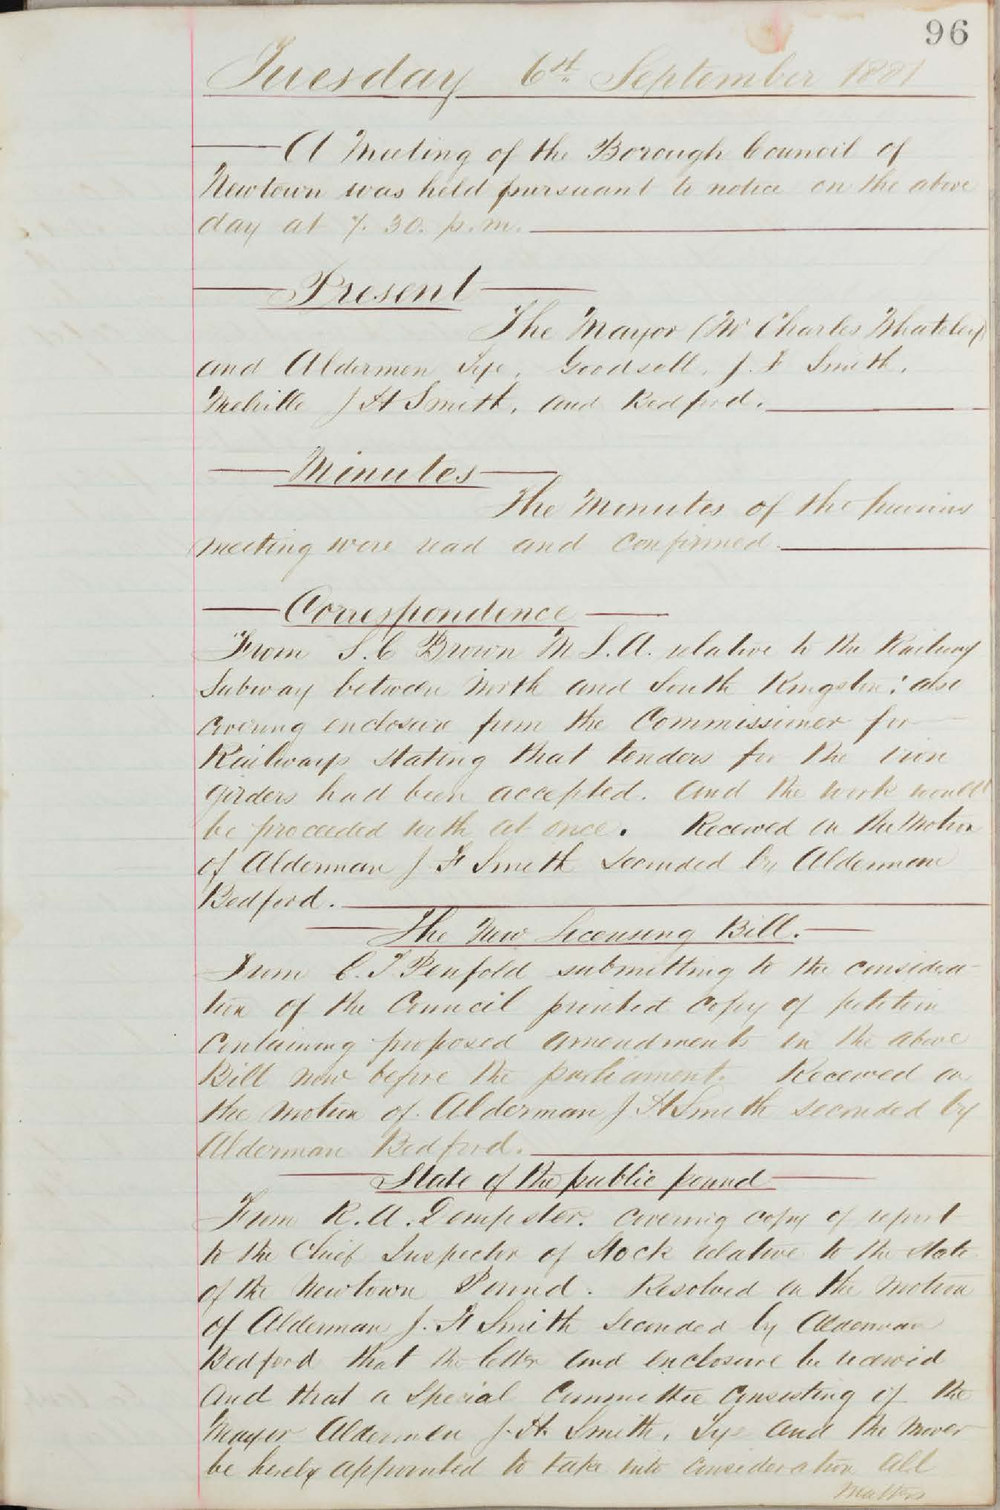 96
Tuesday 6st September 1881
A Meeting of the Borough Council of
Newtown was held pursuant to notice on the above
day at 7.30. p.m.
Present
The Mayor (Mr Charles Whateley)
and Aldermen Tye, Goodsell, J. F Smith,
Melville J H Smith, and Bedford.
Minutes
The Minutes of the previous
meeting were read and confirmed.
Correspondence
From S. C Brown M L.A. relative to the Railway
Subway between North and South Kingston: also
covering enclosure from the Commissioner for
Railways stating that tenders for the iron
girders had been accepted. and the work would
be proceeded with at once. Received on the Motion
of Alderman J F Smith Seconded by Alderman
Bedford.
The New Licensing Bill.
From E. T Penfold submitting to the considera-
tion of the Council printed copy of petition
containing proposed amendments in the above
Bill now before the parliament. Received on
the motion of Alderman J H Smith seconded by
Alderman Bedford.
State of the public pound
From R. A. Dempster. covering copy of report
to the Chief Inspector of Stock relative to the state
of the Newtown Pound. Resolved on the motion
of Alderman J. F Smith Seconded by Alderman
Bedford that the letter and enclosure be received
and that a Special Committee consisting of the
Mayor Aldermen J. H. Smith, Tye and the Mover
be hereby appointed to take into consideration all
matters